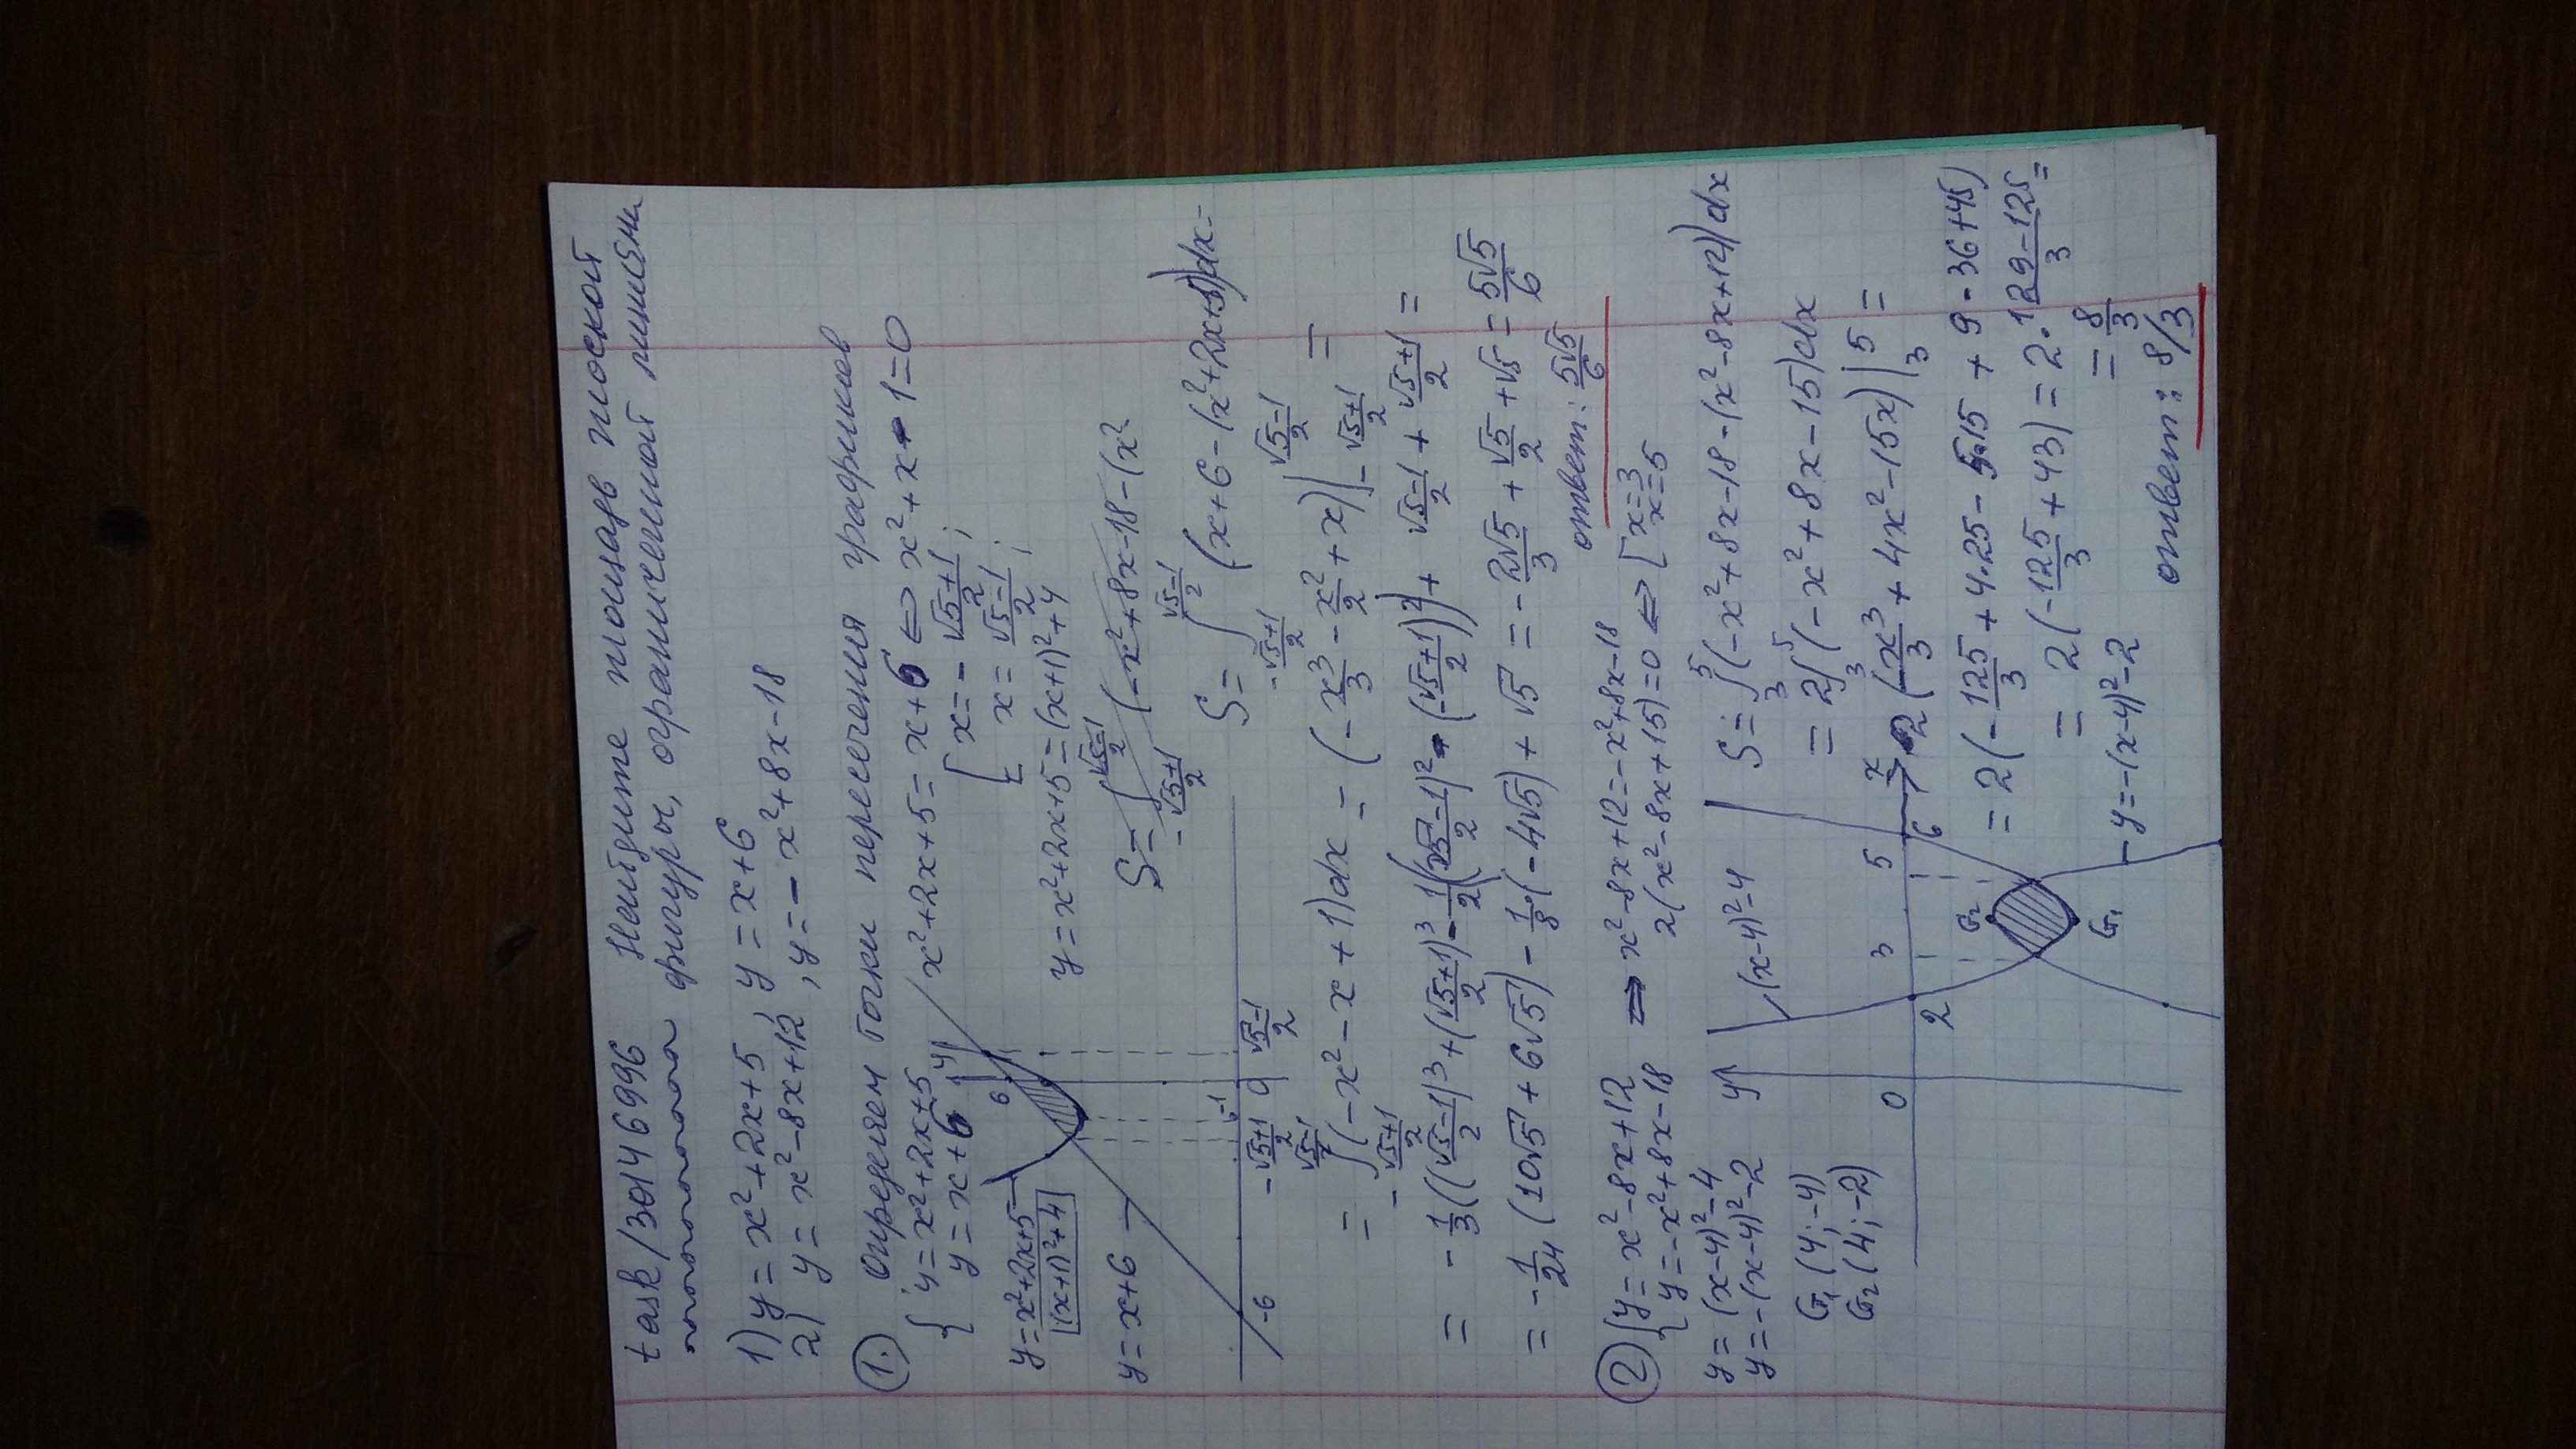 task/30146996 Найдите площадь плоской
фигуры, ограниченной линиями
1) y = x² + 2x + 5, y = x + 6
2) y = x² - 8x + 12, y = - x² + 8x - 18
1. Определяем точки пересечения графиков
{ y = x² + 2x + 5
y = x + 6
x² + 2x + 5 = x + 6 ⇔ x² + x - 1 = 0
[ x = - (√5+1)/2 ;
x = (√5-1)/2 ;
y = x² + 2x + 5
(x+1)² + 4
y = x² + 2x + 5 = (x+1)² + 4
y = x + 6
y
6
-6 -(√5+1)/2 -1 0 (√5-1)/2
S = ∫ (-x² + 8x - 18 - (x²
S = ∫_{-(√5+1)/2}^{(√5-1)/2} (x + 6 - (x² + 2x + 5))dx =
= ∫_{-(√5+1)/2}^{(√5-1)/2} (-x² - x + 1)dx = (- x³/3 - x²/2 + x) |_{-(√5+1)/2}^{(√5-1)/2} =
= - 1/3 (((√5-1)/2)³ + ((√5+1)/2)³ - 1/2 (((√5-1)/2)² - (-(√5+1)/2)²) + (√5-1)/2 + (√5+1)/2 =
= - 1/24 (10√5 + 6√5) - 1/8 (-4√5) + √5 = - 2√5/3 + √5/2 + √5 = 5√5/6
ответ: 5√5/6
2 { y = x² - 8x + 12
y = -x² + 8x - 18
⇒ x² - 8x + 12 = -x² + 8x - 18
2(x² - 8x + 15) = 0 ⇔ [ x = 3
x = 5
y = (x-4)² - 4
y = -(x-4)² - 2
G₁ (4; -4)
G₂ (4; -2)
y
(x-4)² - 4
0 2 3 5 6 x
G₂
G₁
y = -(x-4)² - 2
S = ∫_3^5 (-x² + 8x - 18 - (x² - 8x + 12))dx
= 2∫_3^5 (-x² + 8x - 15)dx
= 2 (-x³/3 + 4x² - 15x) |_3^5 =
= 2 (- 125/3 + 4·25 - 5·15 + 9 - 36 + 45)
= 2 (- 125/3 + 43) = 2 · (129 - 125)/3 =
= 8/3
ответ: 8/3